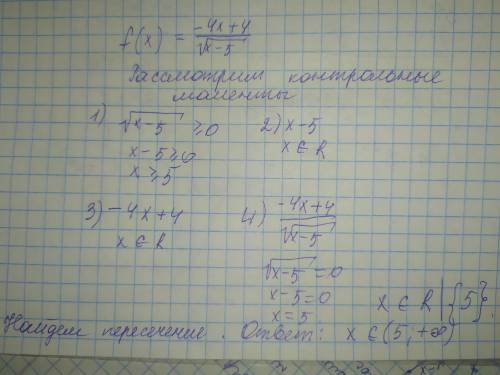 f(x) = \frac{-4x+4}{\sqrt{x-5}}
Рассмотрим контрольные
моменты
1) \sqrt{x-5} ≥0
x-5≥0
x≥5
2) x-5
x ∈ R
3) -4x+4
x ∈ R
4) \frac{-4x+4}{\sqrt{x-5}}
\sqrt{x-5} =0
x-5=0
x=5
x ∈ R | {5}
Найдем пересечение. Ответ: x ∈ (5; +∞)